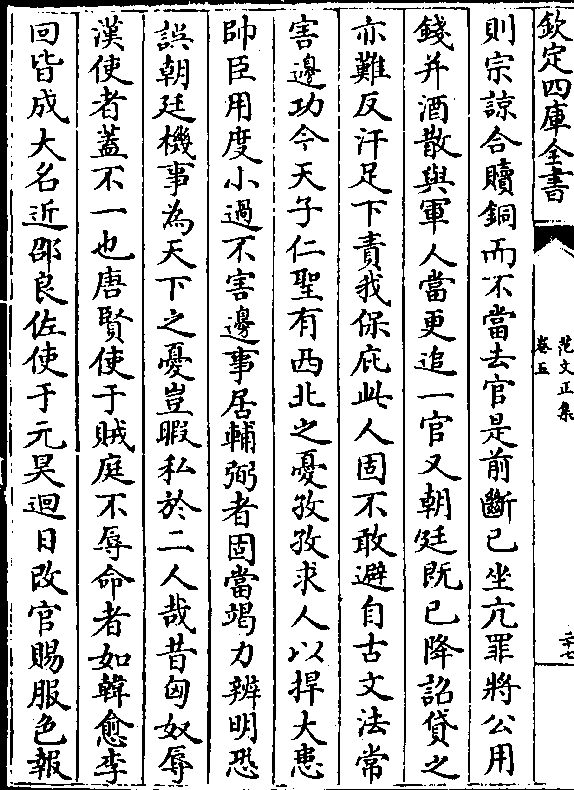 欽定四庫全書
范文正集
卷五
二十七
則宗諒合贖銅而不當去官是前斷已坐亢罪將公用
錢并酒散與軍人當更追一官又朝廷既已降詔貸之
亦難反汗足下責我保庇此人固不敢避自古文法常
害邊功今天子仁聖有西北之憂孜孜求人以捍大患
帥臣用度小過不害邊事居輔弼者固當竭力辨明恐
誤朝廷機事為天下之憂豈暇私於二人哉昔匈奴辱
漢使者蓋不一也唐賢使于賊庭不辱命者如韓愈李
回皆成大名近邵良佐使于元昊迴日改官賜服色報